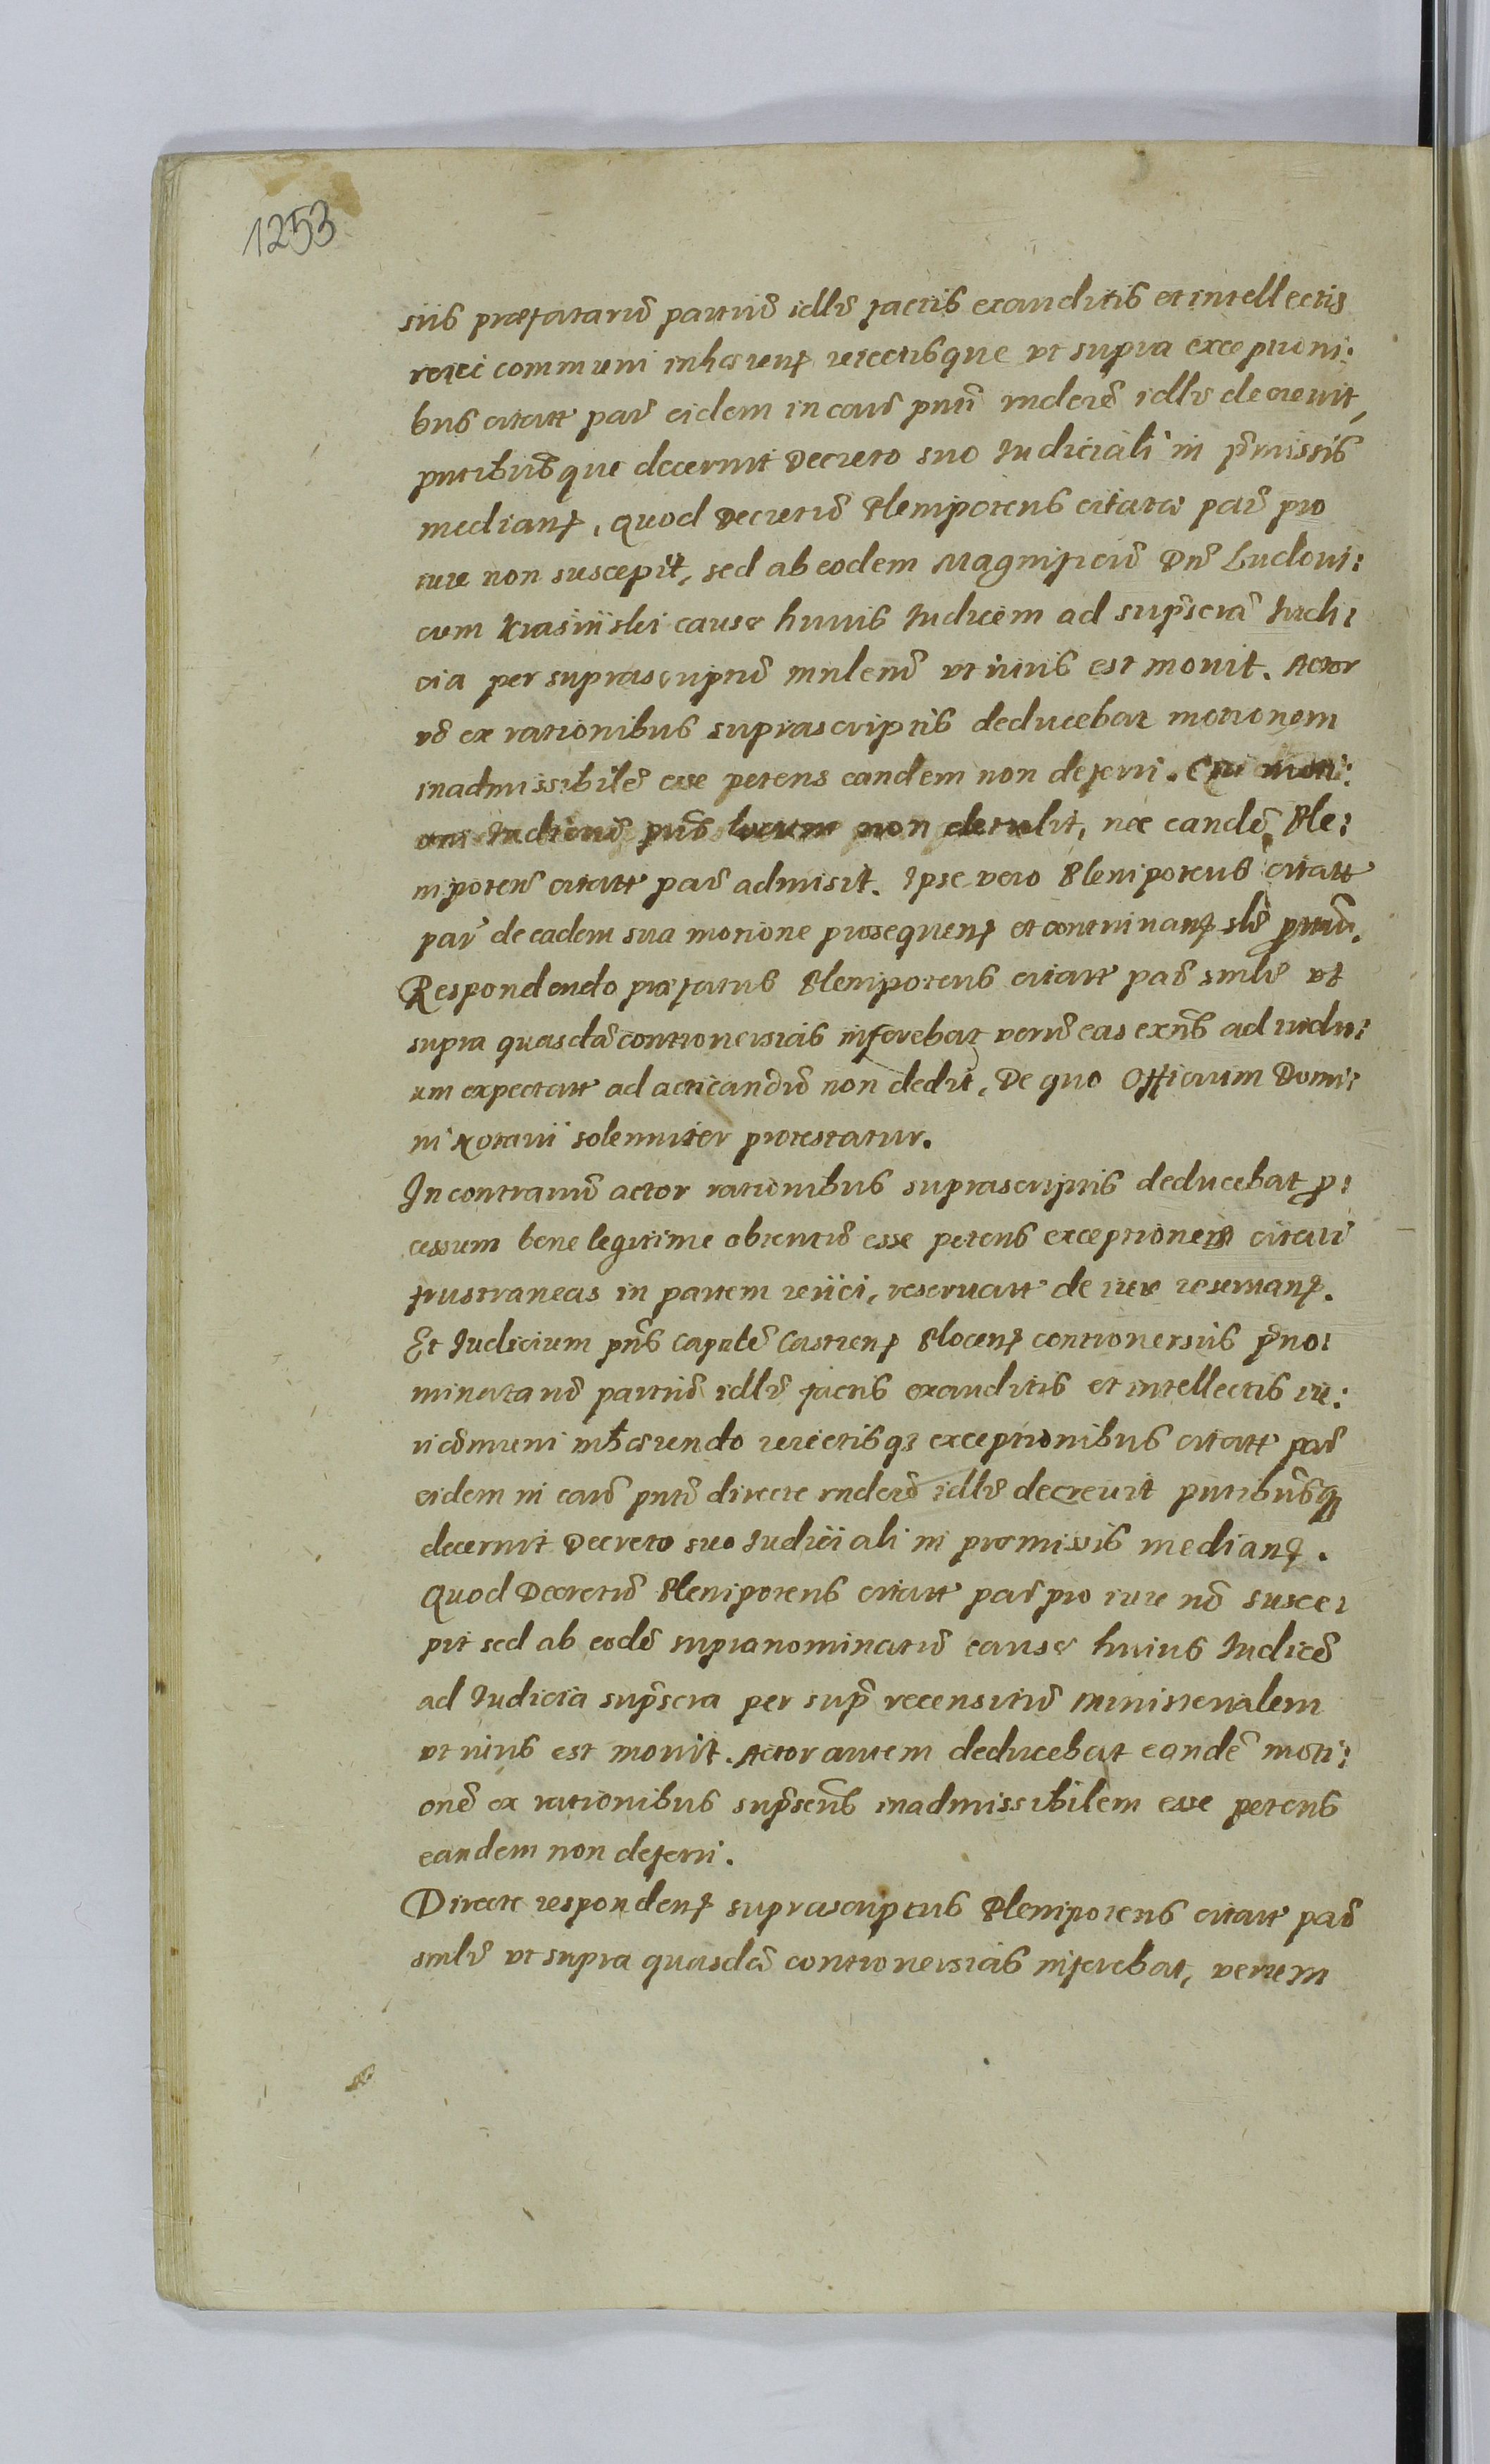 1253
siis præfatarū partiū idlr̄ factis exauditis et intellectis
reiei communi inhæren̄ reiectisque vt supra exceptioni:
bus citatæ par̄ eidem in caūs pn̄ti rn̄derē idlr̄ decreuit,
pn̄tibusque decernit Decreto suo Iudiciali in pr̄missis
median̄, Quod Decretū Plenipotens citatæ par̄ pro
iure non suscepit, sed ab eodem Magnificū Dn̄m Ludoui:
cum Krasiński causæ huius Iudicem ad supr̄scrā Iudi:
cia per suprascriptū Mnlem̄ vt iuris est mouit. Actor
vō ex rationibus suprascriptis deducebat motionem
inadmissibilē esse petens eandem non deferri. Cui moti:
oni Iudiciū pn̄s locum non detulit, nec eandē Ple:
nipoten̄ citatæ par̄ admisit. Ipse vero Plenipotens citatæ
par̄ de eadem sua motione prosequen̄ et continuan̄ slr̄
Respondendo præfatus Plenipotens citatæ par̄ smlr̄ vt
supra quasdā controuersias inferebat verū eas exn̄s ad indu:
um expectatæ ad acticandū non dedit, De quo Officium Domi:
ni Notarii solenniter protestatur.
In contrariū actor rationibus suprascriptis deducebat pro:
cessum bene legitime obtentū esse petens exceptiones citati
frustraneas in partem reiici, reseruatæ de iure reseruan̄.
Et Iudicium pn̄s Capitlē Castren̄ Plocen̄ controuersiis pr̄no:
minatarū partiū idlr̄ factis exauditis et intellectis iu:
ri cōmuni inhærendo reiectisq3 exceptionibus citatæ par̄
eidem in caūs pn̄ti directe rn̄derē idlr̄ decreuit pn̄tibusq3
decernit Decreto suo Iudiciali in præmissis median̄.
Quod Decretū Plenipotens citatæ par̄ pro iure nō susce:
pit sed ab eodē supranominatū causæ huius Iudicē
ad Iudicia supr̄scra per supr̄ recensitū Ministerialem
vt iuris est mouit. Actor autem deducebat eandē moti:
onē ex rationibus supr̄scris inadmissibilem esse petens
eandem non deferri.
Directe responden̄ suprascriptus Plenipotens citatæ par̄
smlr̄ vt supra quasdā controuersias inferebat, verum